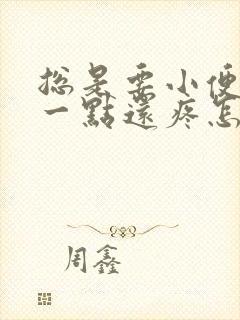 总是要小便
一點還疼怎
周鑫